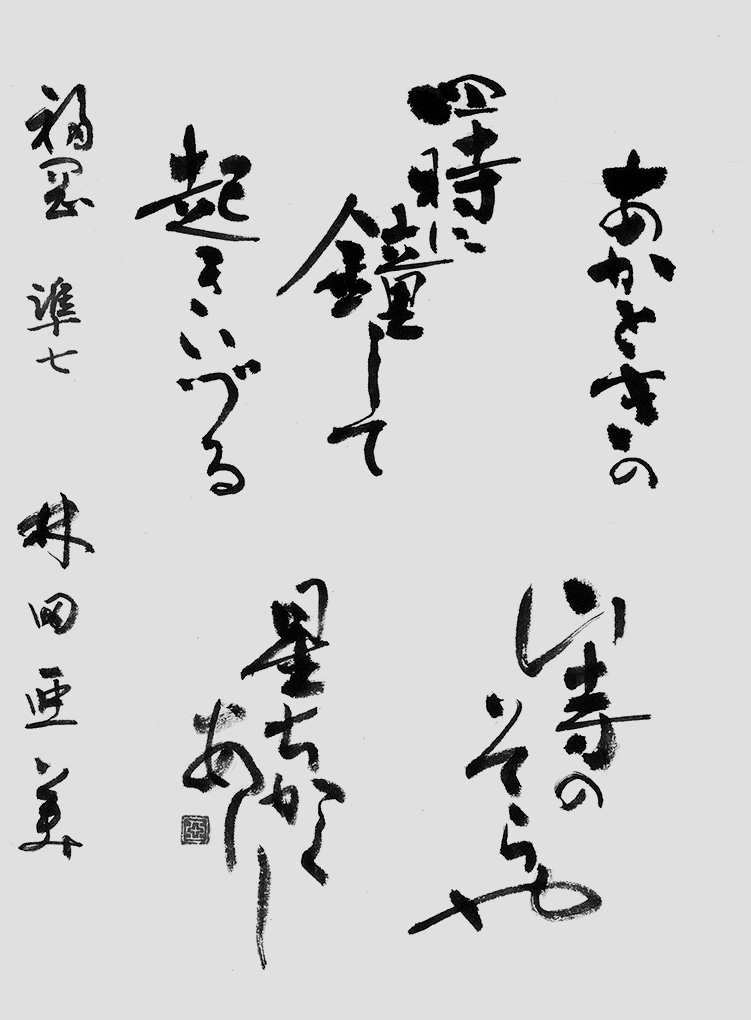 あかときの
四時に
鐘して
起きいづる
山寺の
そらや
星ちかく
あり
福岡 準七 林田亜美